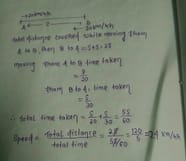 →20km/h
A S B
30km/h
total distance covered while moving from
A to B, then B to A = S + S = 2S
moving from A to B time taken
= S/20
from B to A, time taken
= S/30
∴ Total time taken = S/20 + S/30 = 5S/60
Speed = Total distance / total time = 2S / 5S/60 = 120/5 = 24 km/h